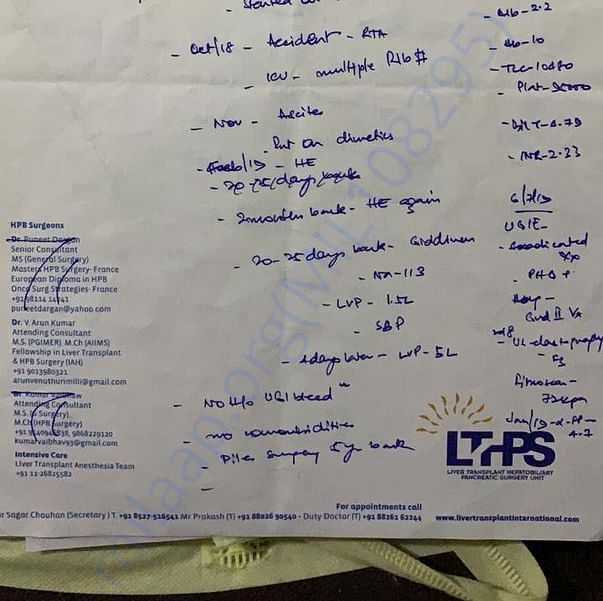 Started on
- Oct/18 - Accident - RTA
- ICU - multiple Rib #
- Nov - Ascites
Put on diuretics
- Feb/19 - HE
- 20-25 days
- 2 months back - HE again
- 20-25 days back - Giddiness
- NA - 113
- LVP - 1.5L
- SBP
- 4 days later - LVP - 5L
- No H/o UGI bleed
- no comorbidities
- Piles surgery 5 yr back
-
- Alb - 2.2
- Hb - 10
- TLC - 10480
- Plat - 95000
- 4.79
- INR - 2.33
6/7/19
UGIE -
- eradicated
- PHG +
Grd II Vx
- elastography
Fibroscan -
72 kpa
Jan/19 - α-FP -
4.7
HPB Surgeons
Dr. Puneet Dargan
Senior Consultant
MS (General Surgery)
Masters HPB Surgery- France
European Diploma in HPB
Onco Surg Strategies- France
+91 98114 14141
puneetdargan@yahoo.com
Dr. V. Arun Kumar
Attending Consultant
M.S. (PGIMER), M.Ch (AIIMS)
Fellowship in Liver Transplant
& HPB Surgery (IAH)
+91 9013980321
arunvenuthurimilli@gmail.com
Dr. Kumar Vaibhaw
Attending Consultant
M.S. (Surgery)
M.Ch (HPB Surgery)
9868229120
kumarvaibhav93@gmail.com
Intensive Care
Liver Transplant Anesthesia Team
+91 11-26825582
LTHPS
LIVER TRANSPLANT HEPATOBILIARY
PANCREATIC SURGERY UNIT
For appointments call
r Sagar Chauhan (Secretary) T +91 8527-516541 Mr Prakash (T) +91 88026 90540 - Duty Doctor (T) +91 88261 62244
www.livertransplantinternational.com